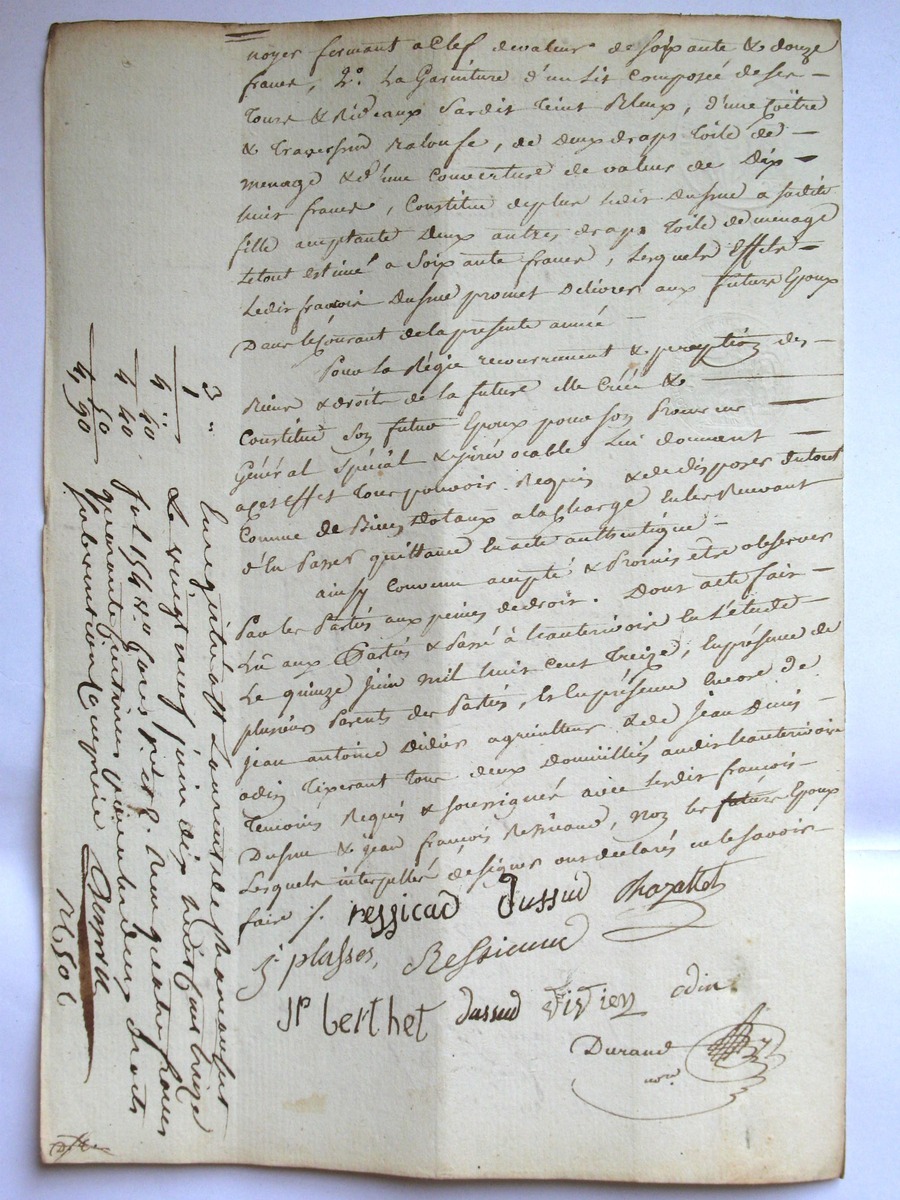 noyer fermant a Clef devaleur de soixante & douze
francs, 2.o La Garniture d'un Lit Composée deser
Tours & Rideaux Sardit teint Bleux, d'une Coëtre
& Traversin Baloufe, de Deux draps Toile de
menage & d'une Couverture de valeur de Dix
huit francs, Constitue deplus ledit Dussud a sadite
fille acceptante Deux autres draps Toile de menage
Le tout estimé a Soixante francs, Lesquels Effets
Ledit françois Dussud promet Délivrer aux future Epoux
Dans le Courant de la presente année
Pour la Régie recouvrement & perception des
Biens & droits de la future Elle Créé &
Constitue Son futur Epoux pour son Procureur
Général Spécial & jrrévocable Lui donnant
acet Effet Tous pouvoirs Requis & de disposer du tout
Comme de Biens Dotaux a la Charge En les Recevant
d'En Passer quittance En acte authentique
ainsy Convenu accepté & Promis etre observer
Par les Parties aux peines de droit. Dont acte fait
Lû aux Parties & Passé à hauterivoire En L'étude
Le quinze juin mil huit cent Treize, En présence de
plusieurs Parents des Parties, & En présence Encore de
jean antoine Didier agriculteur & de jean Denis
odin Tixerant Tous deux Domiciliés audit hauterivoire
Temoins Requis & soussignés avec Ledit françois
Dussud & jean françois Ressicaud, Non les future Epoux
Lesquels interpellés de signer ont déclarés ne le savoir
faire /.
ressicad Dussud Chazallet
j. plasses, Ressicaud
jp berthet dussud Vivien odin
Durand
nore
3 "
1
4. 40
4 40
50
4, 90
Enregistré à St Laurent de chamousset
Le vingt neuf juin dix huit cent treize
fol 154 Ro Cases Reçu quatre francs
quarante Centimes vieille deux droits
Subvention Comprise